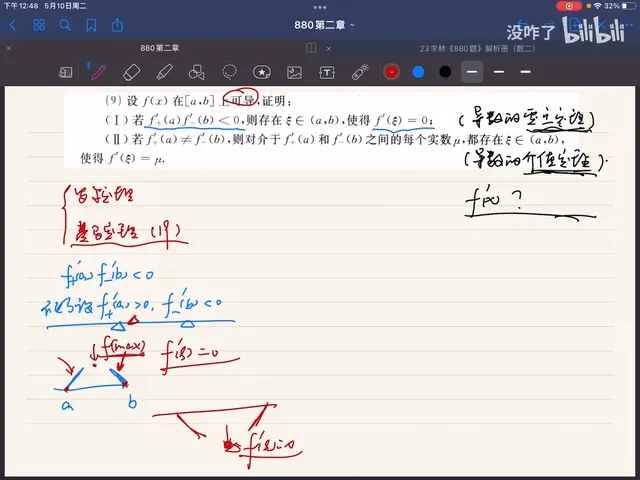 下午12:48 5月10日周二
32%
没咋了 bilibili
880第二章
23李林《880题》解析册（数二）
(9) 设 f(x) 在[a,b]上可导,证明:
(Ⅰ) 若 f′₊(a)f′₋(b)<0,则存在 ξ∈(a,b),使得 f′(ξ)=0;
(导数的零点定理)
(Ⅱ) 若 f′₊(a)≠f′₋(b),则对介于 f′₊(a) 和 f′₋(b) 之间的每个实数 μ,都存在 ξ∈(a,b),
使得 f′(ξ)=μ.
(导数的介值定理).
f′(x) ?
罗尔定理
费马定理
f′₊(a) f′₋(b) <0
不妨设 f′₊(a)>0, f′₋(b)<0
f(max)
f′(ξ)=0
a b
f′(ξ)=0